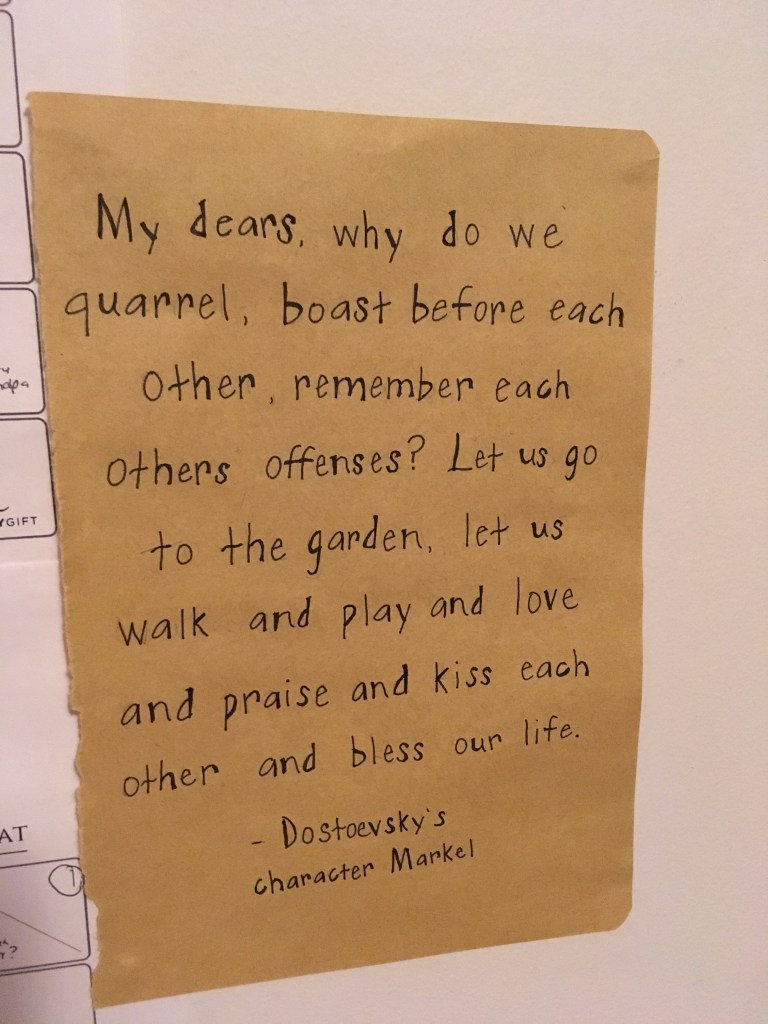 My dears, why do we
quarrel, boast before each
other, remember each
others offenses? Let us go
to the garden, let us
walk and play and love
and praise and kiss each
other and bless our life.
- Dostoevsky's
character Markel
GIFT
AT